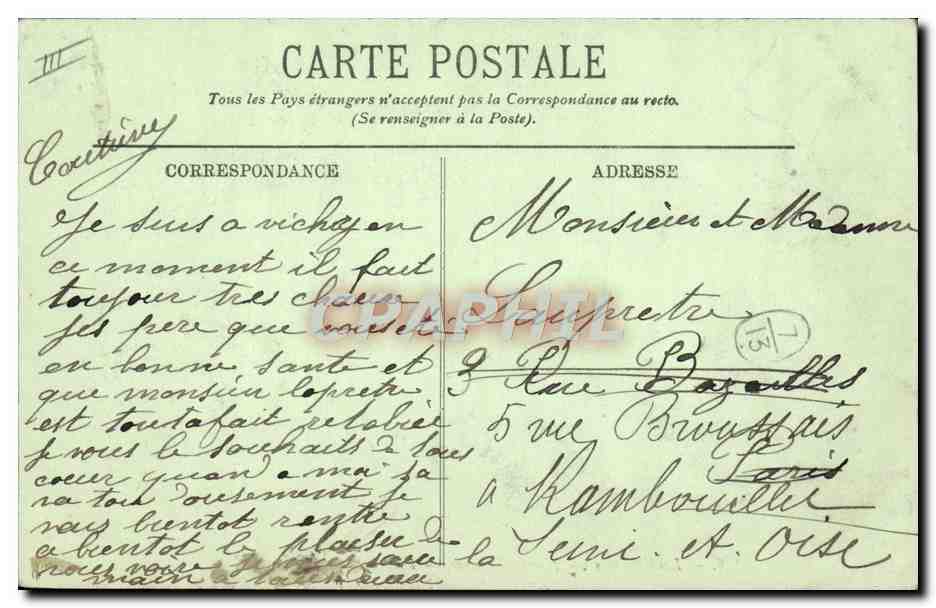 III
CARTE POSTALE
Tous les Pays étrangers n'acceptent pas la Correspondance au recto.
(Se renseigner à la Poste).
CORRESPONDANCE
Je suis a vichy en
ce moment il fait
toujour tres chaux
jes pere que vous ete
en bonne sante et
que monsieu lopretre
est toutafait retablie
je vous le souhaits de tous
coeur quand a moi sa
va tou dousement je
vais bientot rentre
a bientot le plaisir de
vous voire je vous sere
main a tous deux
ADRESSE
Monsieur et Madame
Laupretre
7
13
9 Rue Bazeilles
5 rue Broussais
Paris
a Rambouillet
la Seine et Oise
CPARPHIL